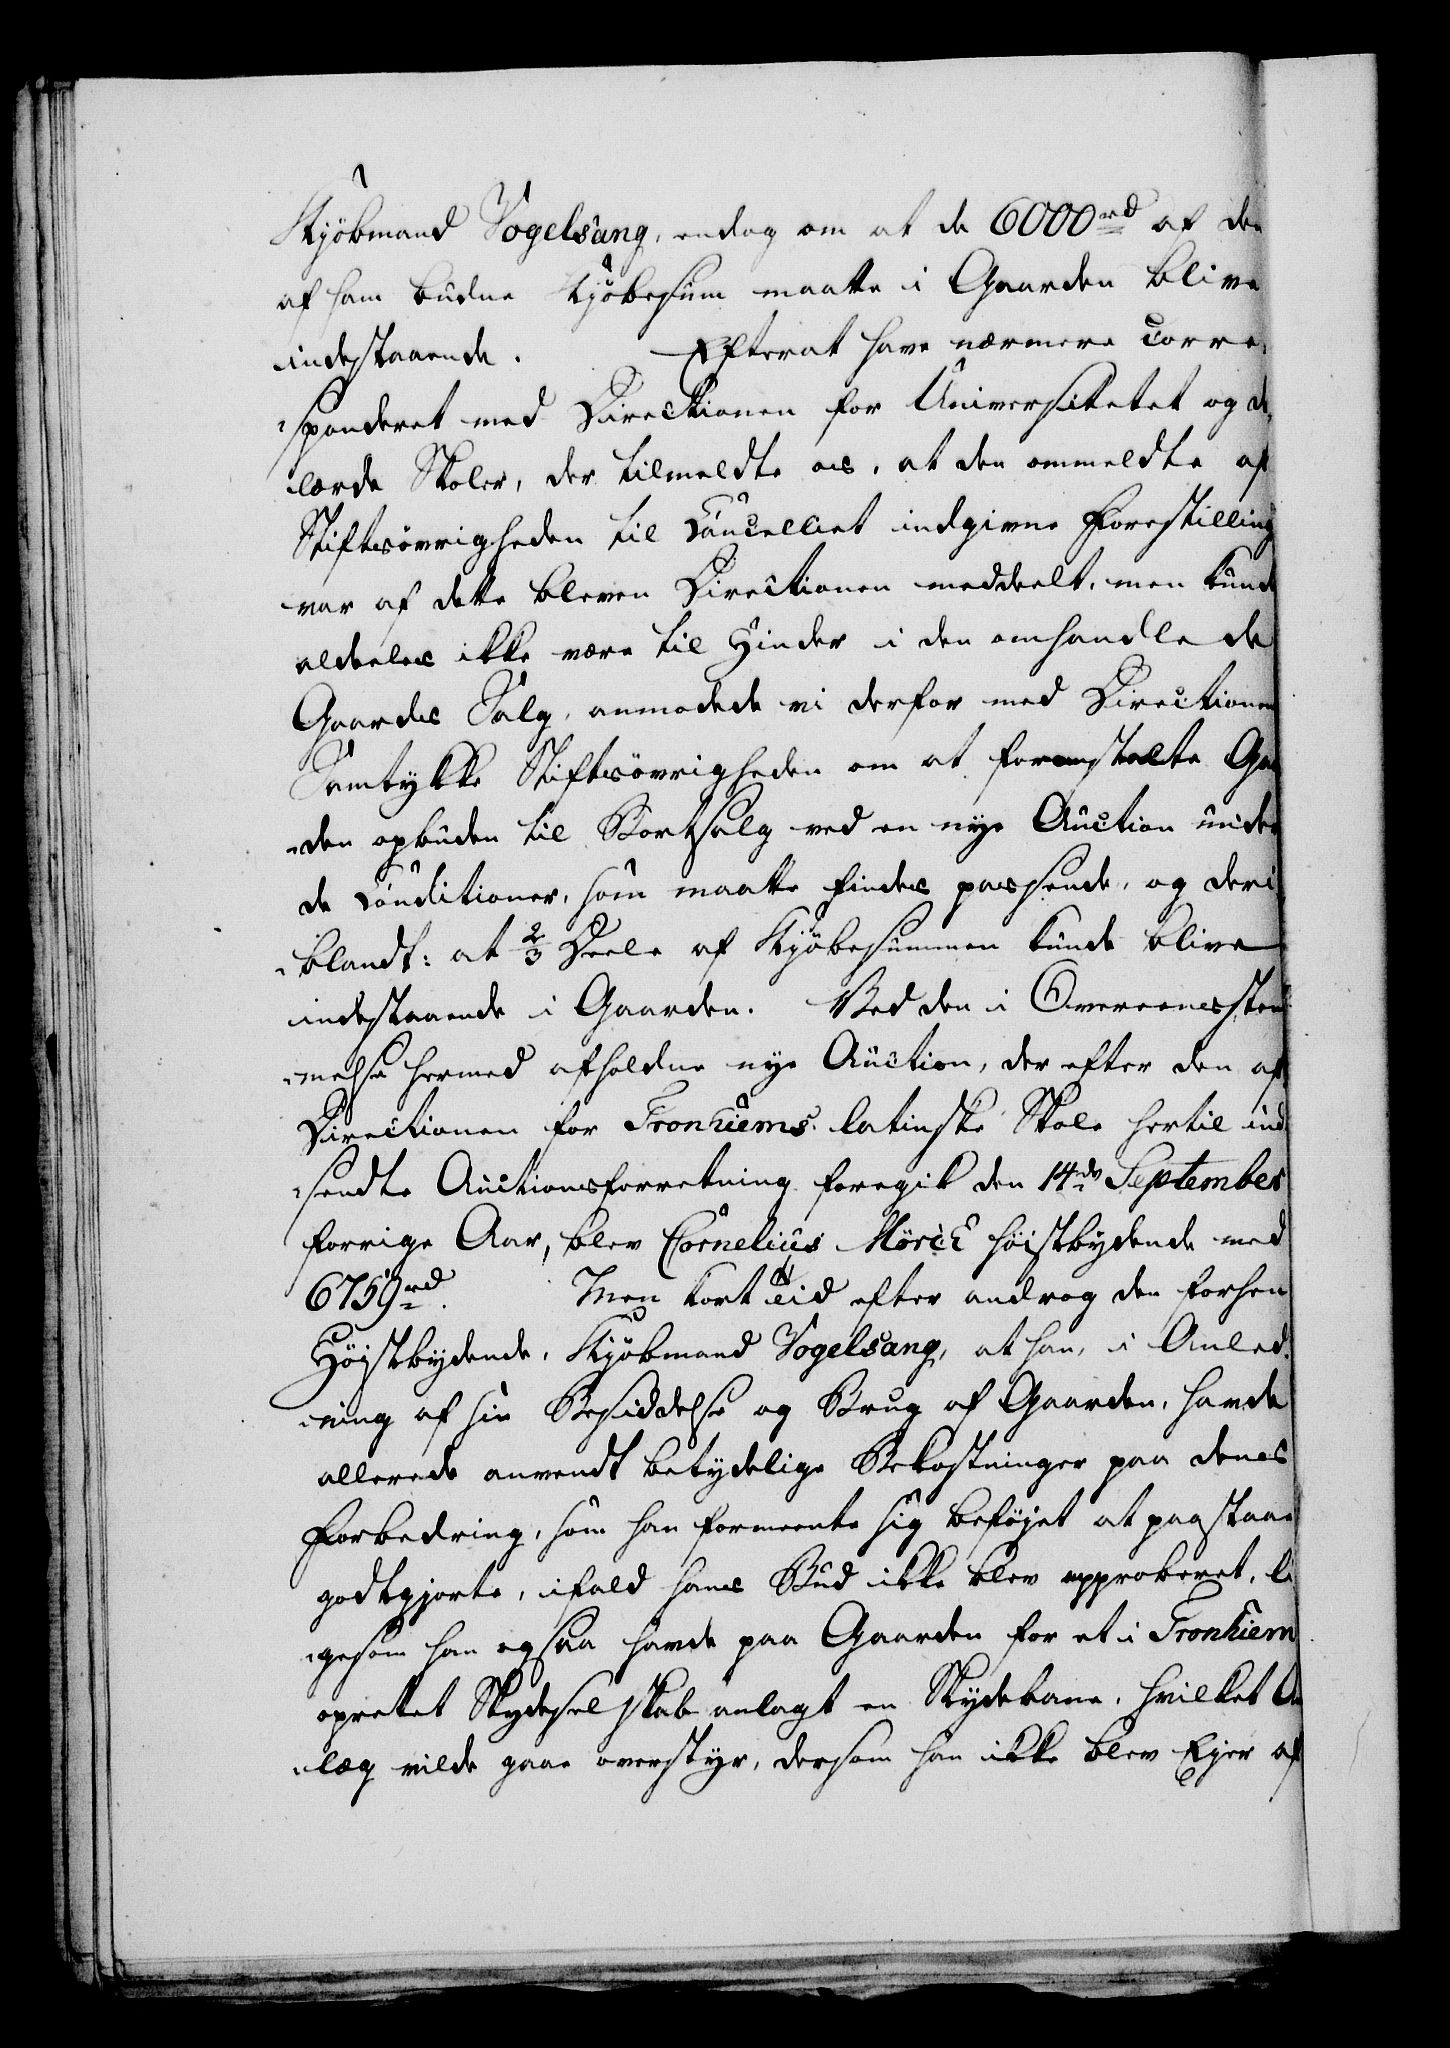 Kjöbmand Vogelsang, endog om at de 6000rd af den
af ham budne Kjöbesum maatte i Gaarden blive
indestaaende. Efterat have nærmere corre-
sponderet med Directionen for Universitetet og de
lærde Skoler, der tilmeldte os, at den ommeldte af
Stiftsövrigheden til Cancelliet indgivne Forestilling
var af dette bleven Directionen meddeelt, men kunde
aldeeles ikke være til Hinder i den omhandlede
Gaardes Salg, anmodede vi derfor med Directionens
Samtykke Stiftsövrigheden om at foranstalte Gaar-
den opbuden til Bortsalg ved en nye Auction under
de Conditioner, som maatte findes passende, og deri-
blandt: at 2/3 Deele af Kjöbesummen kunde blive
indestaaende i Gaarden. Ved den i Overeensstem-
melse hermed afholdne nye Auction, der efter den af
Directionen for Tronhiems latinske Skole hertil ind-
sendte Auctionsforretning foregik den 14de September
forrige Aar, blev Cornelius Mörch höistbydende med
6759rd. Men kort Tid efter androg den forhen
Höjstbydende, Kjöbmand Vogelsang, at han, i Anled-
ning af sin Besiddelse og Brug af Gaarden, havde
allerede anvendt betydelige Bekostninger paa denes
Forbedring, som han formeente sig beföjet at paastaae
godtgjorte, ifald hans Bud ikke blev approberet, li-
gesom han ogsaa havde paa Gaarden for et i Tronhiem
oprettet Skydeselskab anlagt en Skydebane, hvilket An-
læg vilde gaae overstyr, dersom han ikke blev Ejer af